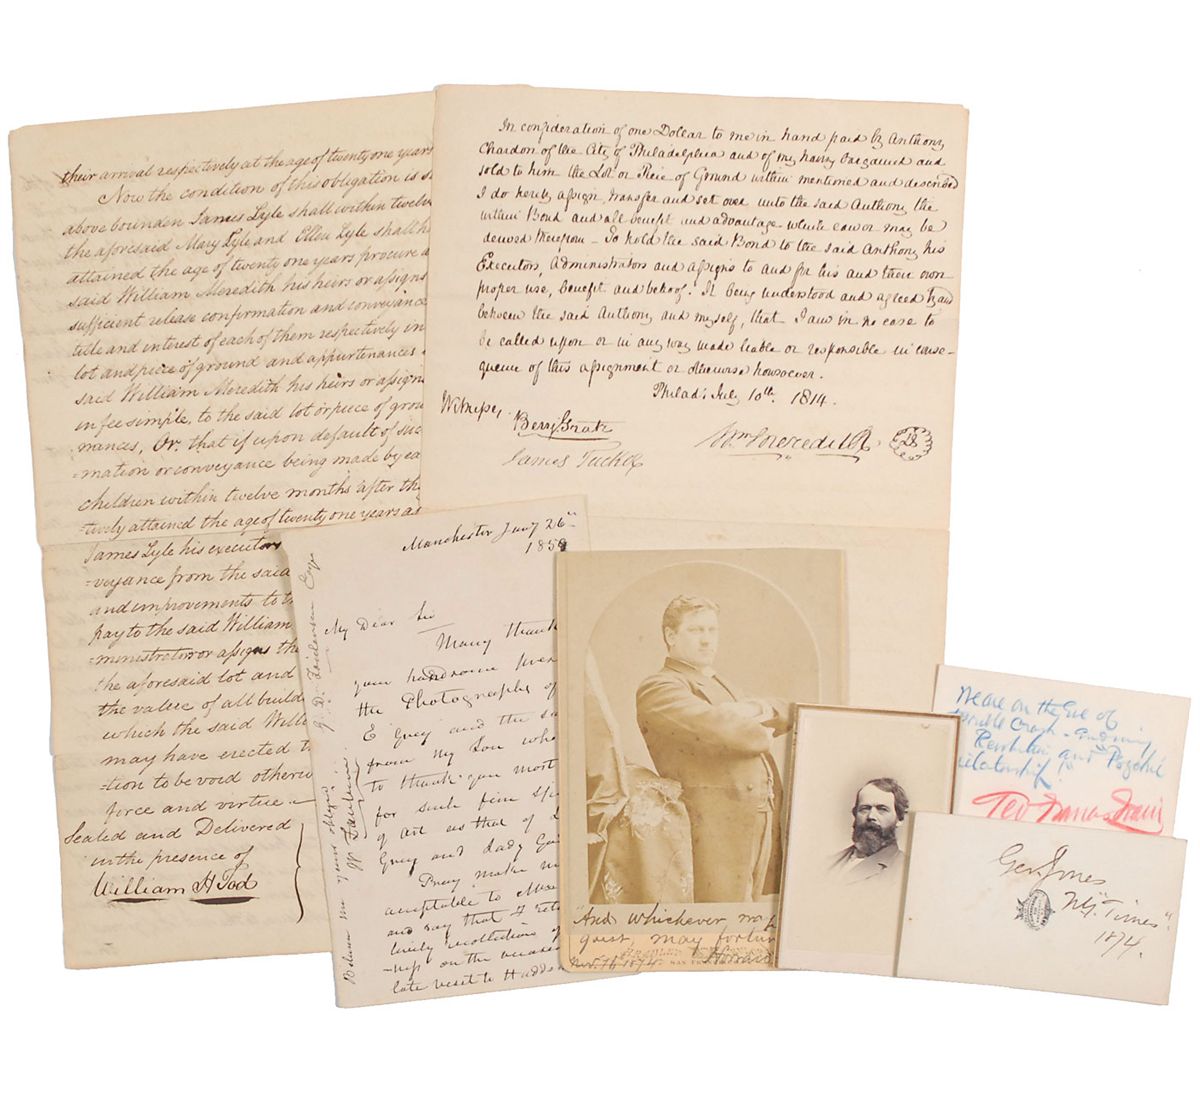 their arrival respectively at the age of twenty one years
Now the condition of this obligation is
above bounden James Lyle shall within twelve
the aforesaid Mary Lyle and Ellen Lyle shall
attained the age of twenty one years procure
said William Meredith his heirs or assigns
sufficient release confirmation and conveyance
title and interest of each of them respectively in
lot and piece of ground and appurtenances
said William Meredith his heirs or assigns
in fee simple, to the said lot or piece of
mances, Or that if upon default of
mation or conveyance being made by
children within twelve months after the
tively attained the age of twenty one years as
James Lyle his executors
=veyance from the said
and improvements to the
pay to the said William
=ministrators or assigns the
the aforesaid lot and
the value of all build
which the said Willi
may have erected
tion to be void otherwi
force and virtue
Sealed and Delivered
in the presence of
William H Tod
In consideration of one Dollar to me in hand paid by Anthony
Chardon of the City of Philadelphia and of my having bargained and
sold to him the Lot or Piece of Ground within mentioned and described
I do hereby assign, transfer and set over unto the said Anthony the
within Bond and all benefit and advantage which can or may be
derived therefrom - To hold the said Bond to the said Anthony his
Executors, Administrators and assigns to and for his and their own
proper use, benefit and behoof. It being understood and agreed by and
between the said Anthony and myself, that I am in no case to
be called upon or in any way made liable or responsible in conse-
quence of this assignment or otherwise howsoever.
Philad. July 10th 1814.
Witnesses
Benj. Gratz
James Tucker
Wm Meredith
LS
Manchester Jany 26th
1859
My Dear Sir
Many thank
your handsome
the Photographs of
E Grey and the
from my Son who
to thank you most
for such fine
of Art as that of
Grey and Lady
Pray make
acceptable to
and say that I
lively recollections of
on the
late visit to
Believe me yours
"And whichever
guest, may
Nov. 16 1874
We are on the Eve of
Revolution and
Geo. Jones
N.Y. "Times"
1874.